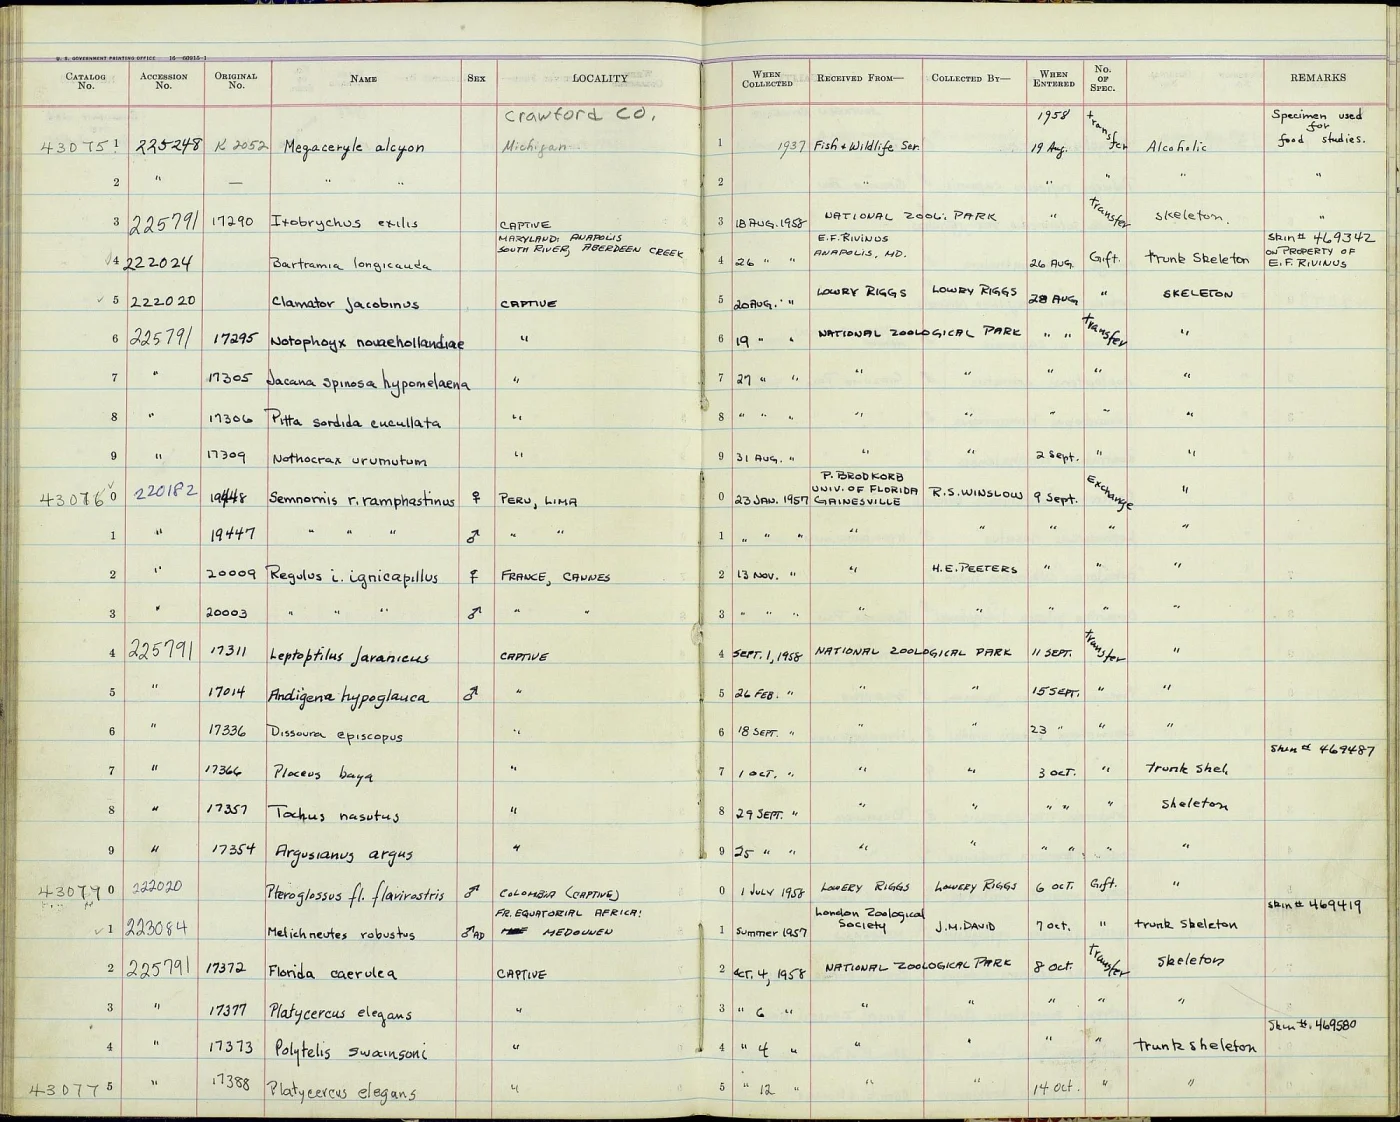 U. S. GOVERNMENT PRINTING OFFICE 16—60915-1
CATALOG No. ACCESSION No. ORIGINAL No. NAME SEX LOCALITY WHEN COLLECTED RECEIVED FROM— COLLECTED BY— WHEN ENTERED No. OF SPEC. REMARKS
Crawford Co. 1958 Specimen used for
43075 1 225248 K 2052 Megaceryle alcyon Michigan 1 1937 Fish & Wildlife Ser. 19 Aug. transfer Alcoholic food studies.
2 " — " " 2 " " " "
3 225791 17290 Ixobrychus exilis CAPTIVE 3 18 AUG. 1958 NATIONAL ZOOL. PARK " transfer skeleton. "
MARYLAND: ANAPOLIS E.F. RIVINUS skin # 469342
SOUTH RIVER, ABERDEEN CREEK ANAPOLIS, MD. ON PROPERTY OF
4 222024 Bartramia longicauda 4 26 " " 26 AUG. Gift. trunk skeleton E.F. RIVINUS
5 222020 Clamator jacobinus CAPTIVE 5 20 AUG. " LOWRY RIGGS LOWRY RIGGS 28 AUG " SKELETON
6 225791 17295 Notophoyx novaehollandiae " 6 19 " " NATIONAL ZOOLOGICAL PARK " " transfer "
7 " 17305 Jacana spinosa hypomelaena " 7 27 " " " " " " "
8 " 17306 Pitta sordida cucullata " 8 " " " " " " " "
9 " 17309 Nothocrax urumutum " 9 31 AUG. " " " 2 Sept. " "
P. BRODKORB
UNIV. OF FLORIDA
43076 0 220182 19448 Semnornis r. ramphastinus ♀ PERU, LIMA 0 23 JAN. 1957 GAINESVILLE R.S. WINSLOW 9 Sept. Exchange "
1 " 19447 " " " ♂ " " 1 " " " " " " " "
2 " 20009 Regulus i. ignicapillus ♀ FRANCE, CANNES 2 13 NOV. " " H.E. PEETERS " " "
3 " 20003 " " " ♂ " " 3 " " " " " " " "
4 225791 17311 Leptoptilus javanicus CAPTIVE 4 SEPT. 1, 1958 NATIONAL ZOOLOGICAL PARK 11 SEPT. transfer "
5 " 17014 Andigena hypoglauca ♂ " 5 26 FEB. " " " 15 SEPT. " "
6 " 17336 Dissoura episcopus " 6 18 SEPT. " " " 23 " " "
skin # 469487
7 " 17366 Ploceus baya " 7 1 OCT. " " " 3 OCT. " trunk skel.
8 " 17357 Tockus nasutus " 8 29 SEPT. " " " " " " skeleton
9 " 17354 Argusianus argus " 9 25 " " " " " " " "
43077 0 222020 Pteroglossus fl. flavirostris ♂ COLOMBIA (CAPTIVE) 0 1 JULY 1958 LOWERY RIGGS LOWERY RIGGS 6 OCT. Gift. "
FR. EQUATORIAL AFRICA: London Zoological skin # 469419
1 223084 Melichneutes robustus ♂ AD MEDOUNEN 1 Summer 1957 Society J.M. DAVID 7 Oct. " trunk skeleton
2 225791 17372 Florida caerulea CAPTIVE 2 Oct. 4, 1958 NATIONAL ZOOLOGICAL PARK 8 Oct. Transfer skeleton
3 " 17377 Platycercus elegans " 3 " 6 " " " " " "
skin #. 469580
4 " 17373 Polytelis swainsoni " 4 " 4 " " " " " trunk skeleton
43077 5 " 17388 Platycercus elegans " 5 " 12 " " " 14 Oct. " "